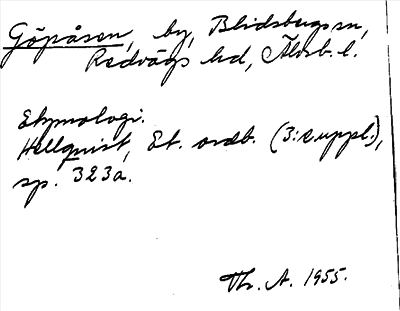 Göpåsen, by, Blidsbergs sn,
Redvägs hd, Älvsb. l.
Etymologi.
Hellquist, Et. ordb. (3:e uppl.),
sp. 323a.
Th. A. 1955.